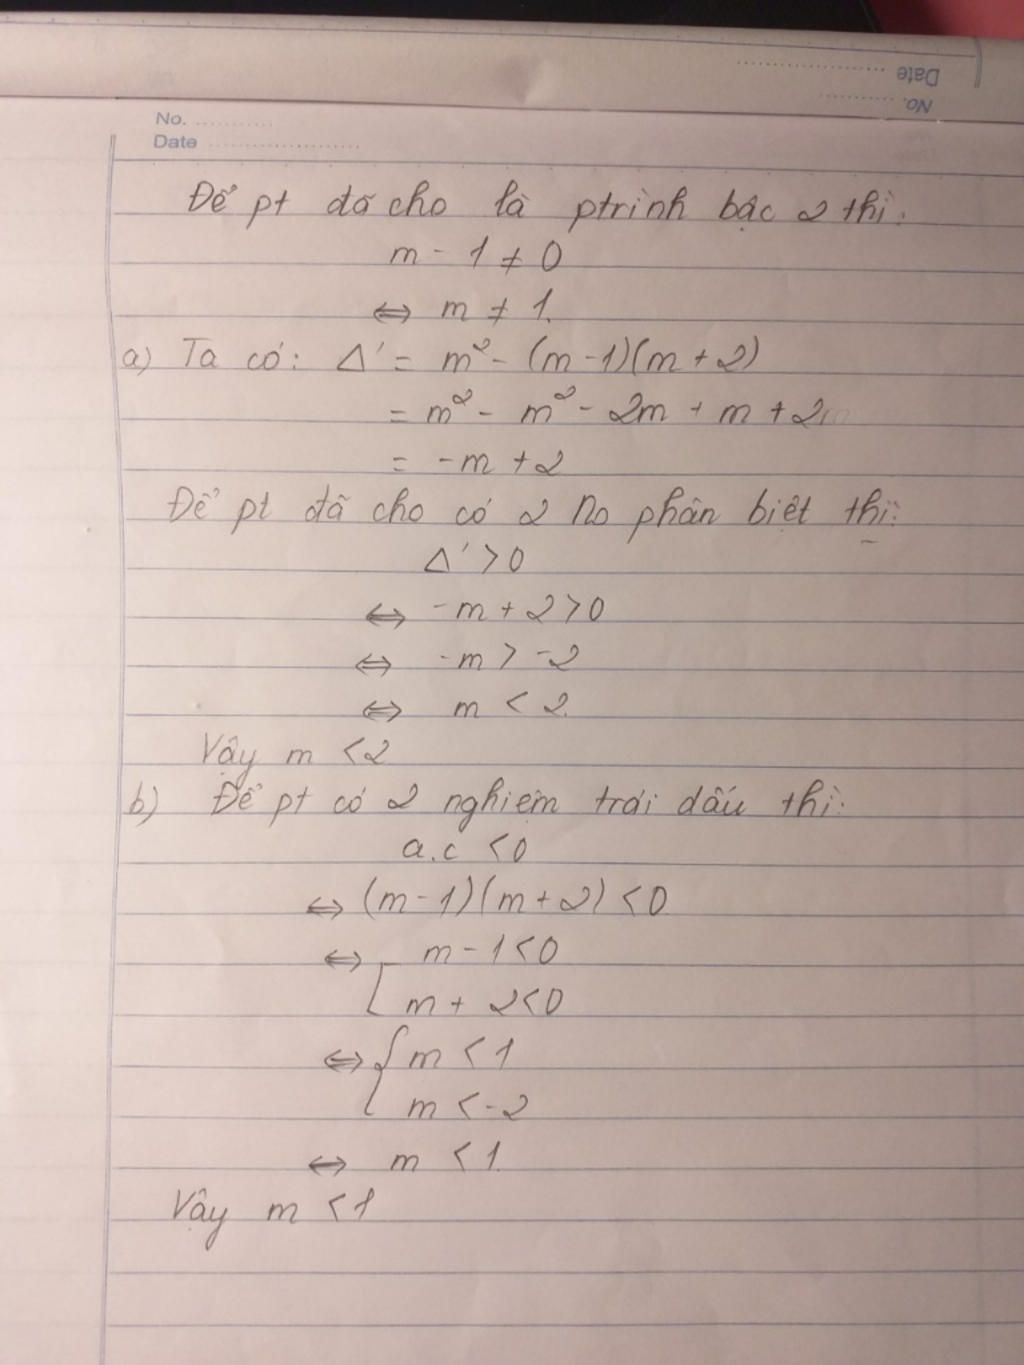 Date ..................
No. ............
No. ............
Date ......................
Để pt đã cho là ptrình bậc 2 thì:
m - 1 ≠ 0
⇔ m ≠ 1.
a) Ta có: Δ' = m² - (m - 1)(m + 2)
= m² - m² - 2m + m + 2
= -m + 2
Để pt đã cho có 2 No phân biệt thì:
Δ' > 0
⇔ -m + 2 > 0
⇔ -m > -2
⇔ m < 2.
Vậy m < 2
b) Để pt có 2 nghiệm trái dấu thì:
a.c < 0
⇔ (m - 1)(m + 2) < 0
⇔ [ m - 1 < 0
m + 2 < 0
⇔ { m < 1
m < -2
⇔ m < 1.
Vậy m < 1